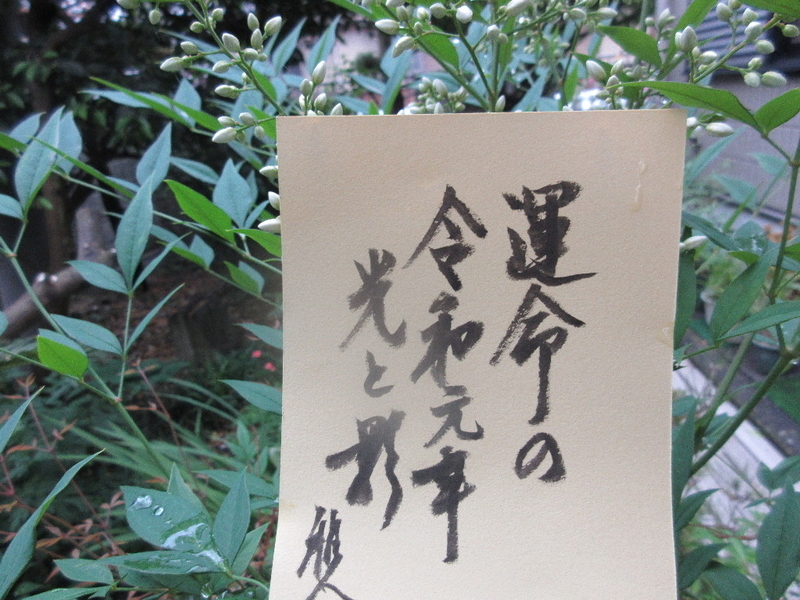 運命の
令和元年
光と影
雅人